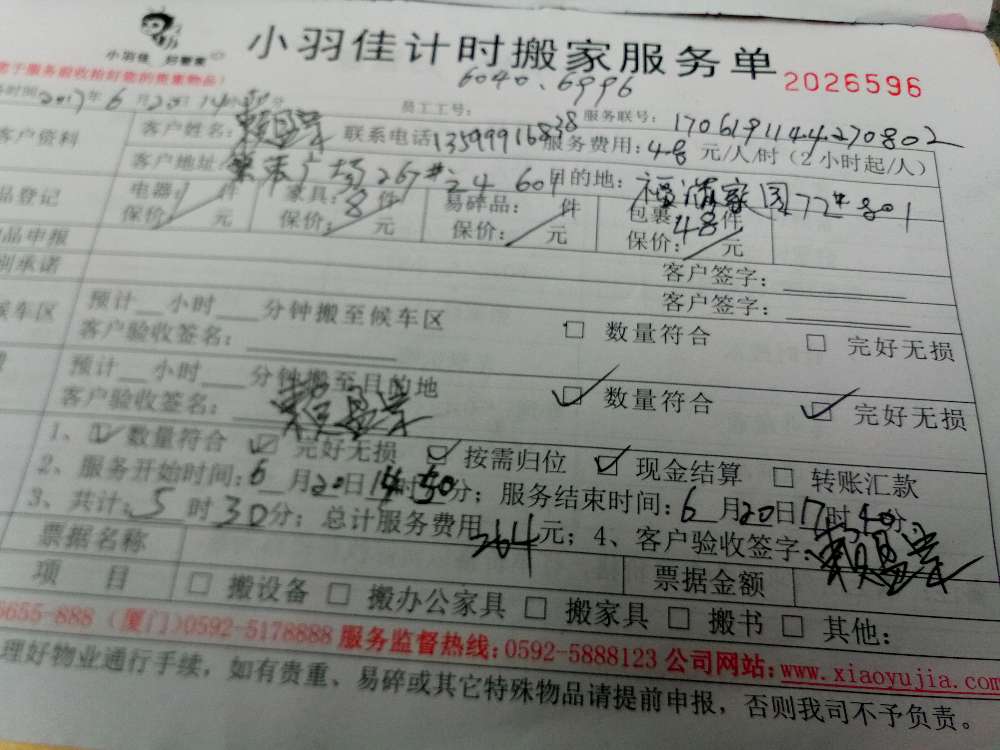 小羽佳 好管家
小羽佳计时搬家服务单
2026596
6040.6996
便于服务验收拾好您的贵重物品)
务时间2017年6月20日14小时 分 员工工号: 服务联号: 170619114427 0802
客户资料 客户姓名: 联系电话13599916838 服务费用:48元/人/时(2小时起/人)
客户地址: 广场267#之4 604 目的地: 家园72#801
品登记 电器:/件 家具:8件 易碎品:/件 包裹:48件
保价:/元 保价:/元 保价:/元 保价:/元
物品申报 客户签字:
别承诺 客户签字:
候车区 预计__小时__分钟搬至候车区 □数量符合 □完好无损
客户验收签名:
预计__小时__分钟搬至目的地 ☑数量符合 ☑完好无损
客户验收签名:
1、☑数量符合 ☑完好无损 ☑按需归位 ☑现金结算 □转账汇款
2、服务开始时间:6月20日14时 分;服务结束时间:6月20日17时40分;
3、共计:5时30分;总计服务费用264元;4、客户验收签字:
票据名称 票据金额
项 目 □搬设备 □搬办公家具 □搬家具 □搬书 □其他:
6655-888 (厦门)0592-5178888 服务监督热线:0592-5888123 公司网站:www.xiaoyujia.com
理好物业通行手续,如有贵重、易碎或其它特殊物品请提前申报,否则我司不予负责。